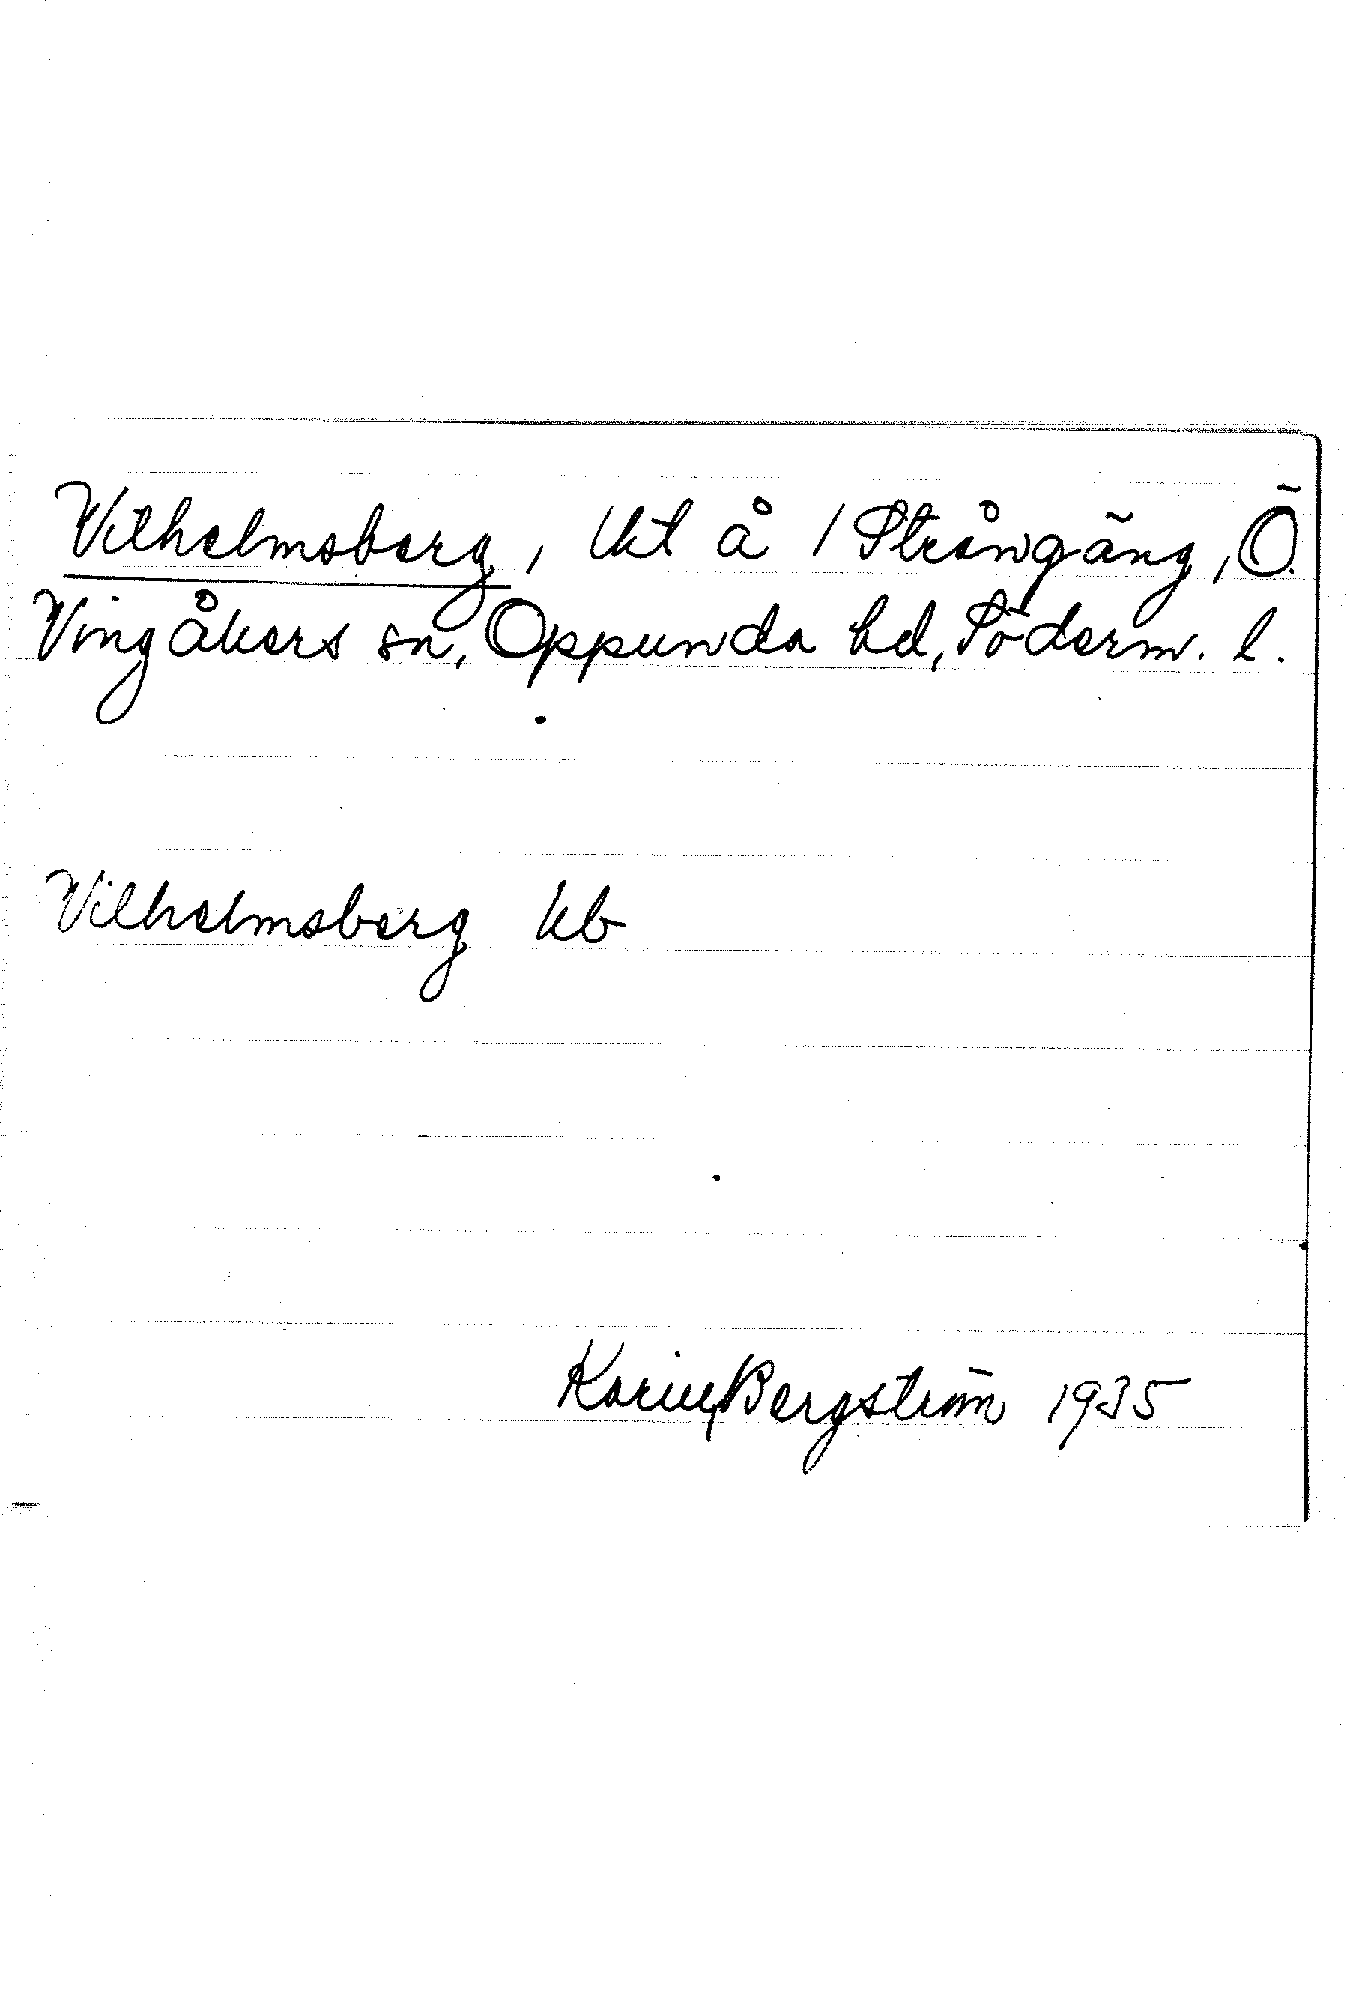 Vilhelmsberg, lkt å 1 Strångäng, Ö.
Vingåkers sn, Oppunda hd, Söderm. l.
Vilhelmsberg kb
Karin Bergström 1935